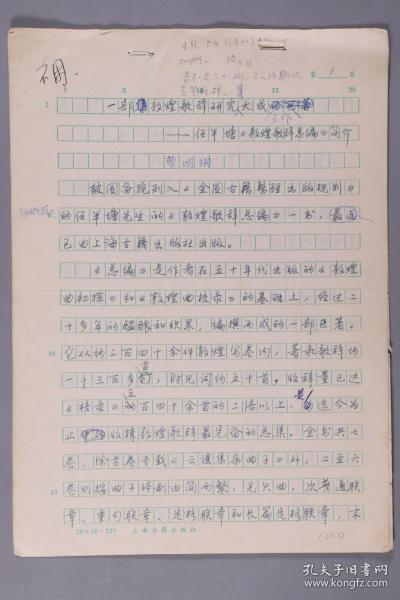 第 1 页
不用.
1 5 10 15 20
1 一部集敦煌歌辞研究大成
——任半塘《敦煌歌辞总编》简介
被国务院列入《全国古籍整理出版规划》
的任半塘先生的《敦煌歌辞总编》一书，最近
已由上海古籍出版社出版。
《总编》是作者在五十年代出版的《敦煌
曲初探》和《敦煌曲校录》的基础上，经过二
十多年的酝酿和积累，编撰而成的一部巨著。
10 它从约二百四十余件敦煌写卷内，著录歌辞约
一千三百多首，附见词约五十首。收辞量已达
《校录》的五百四十余首的二倍以上，是迄今为
止收辑敦煌歌辞最完备的总集。全书共七
卷，除首卷专载《云谣集杂曲子》外，二至六
15 卷则按曲子体制由简而繁：先只曲，次普通联
章、重句联章、定格联章和长篇定格联章，末
20×16=320 上海古籍出版社
1200
孔夫子旧书网
www.kongfz.com